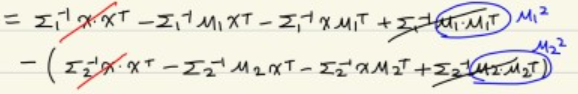 = Σ₁⁻¹ x·xᵀ − Σ₁⁻¹ μ₁ xᵀ − Σ₁⁻¹ x μ₁ᵀ + Σ₁⁻¹ μ₁·μ₁ᵀ μ₁²
− ( Σ₂⁻¹ x·xᵀ − Σ₂⁻¹ μ₂ xᵀ − Σ₂⁻¹ x μ₂ᵀ + Σ₂⁻¹ μ₂·μ₂ᵀ ) μ₂²